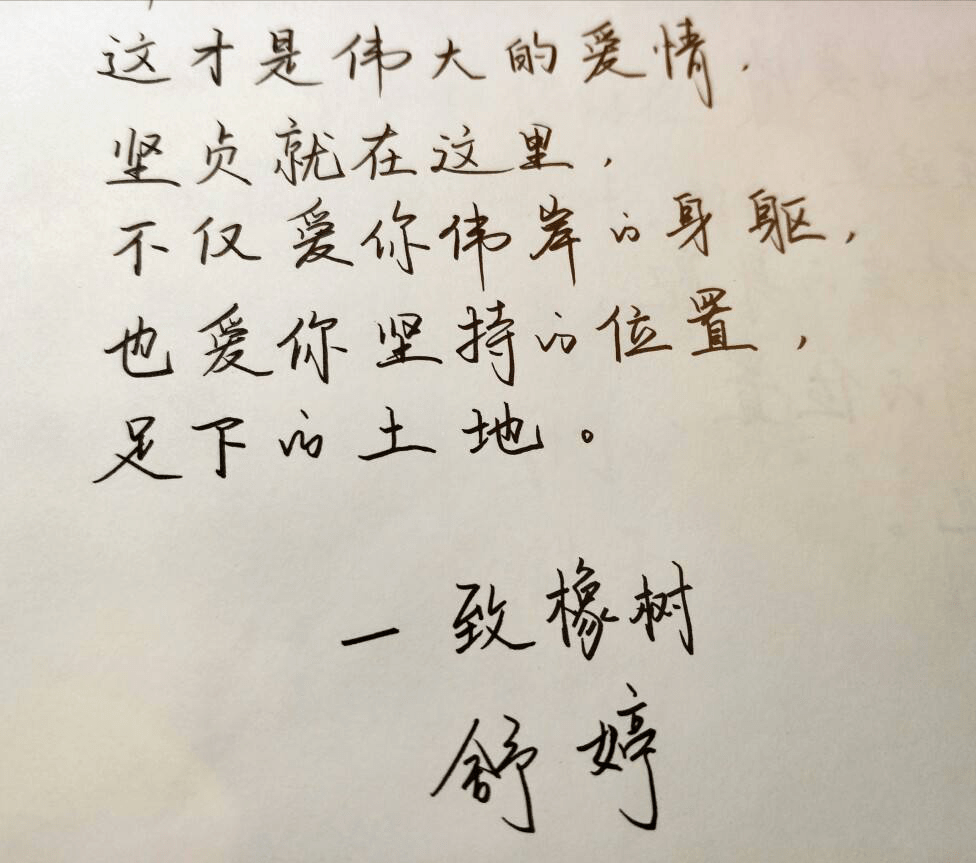 这才是伟大的爱情，
坚贞就在这里，
不仅爱你伟岸的身躯，
也爱你坚持的位置，
足下的土地。
— 致橡树
舒婷